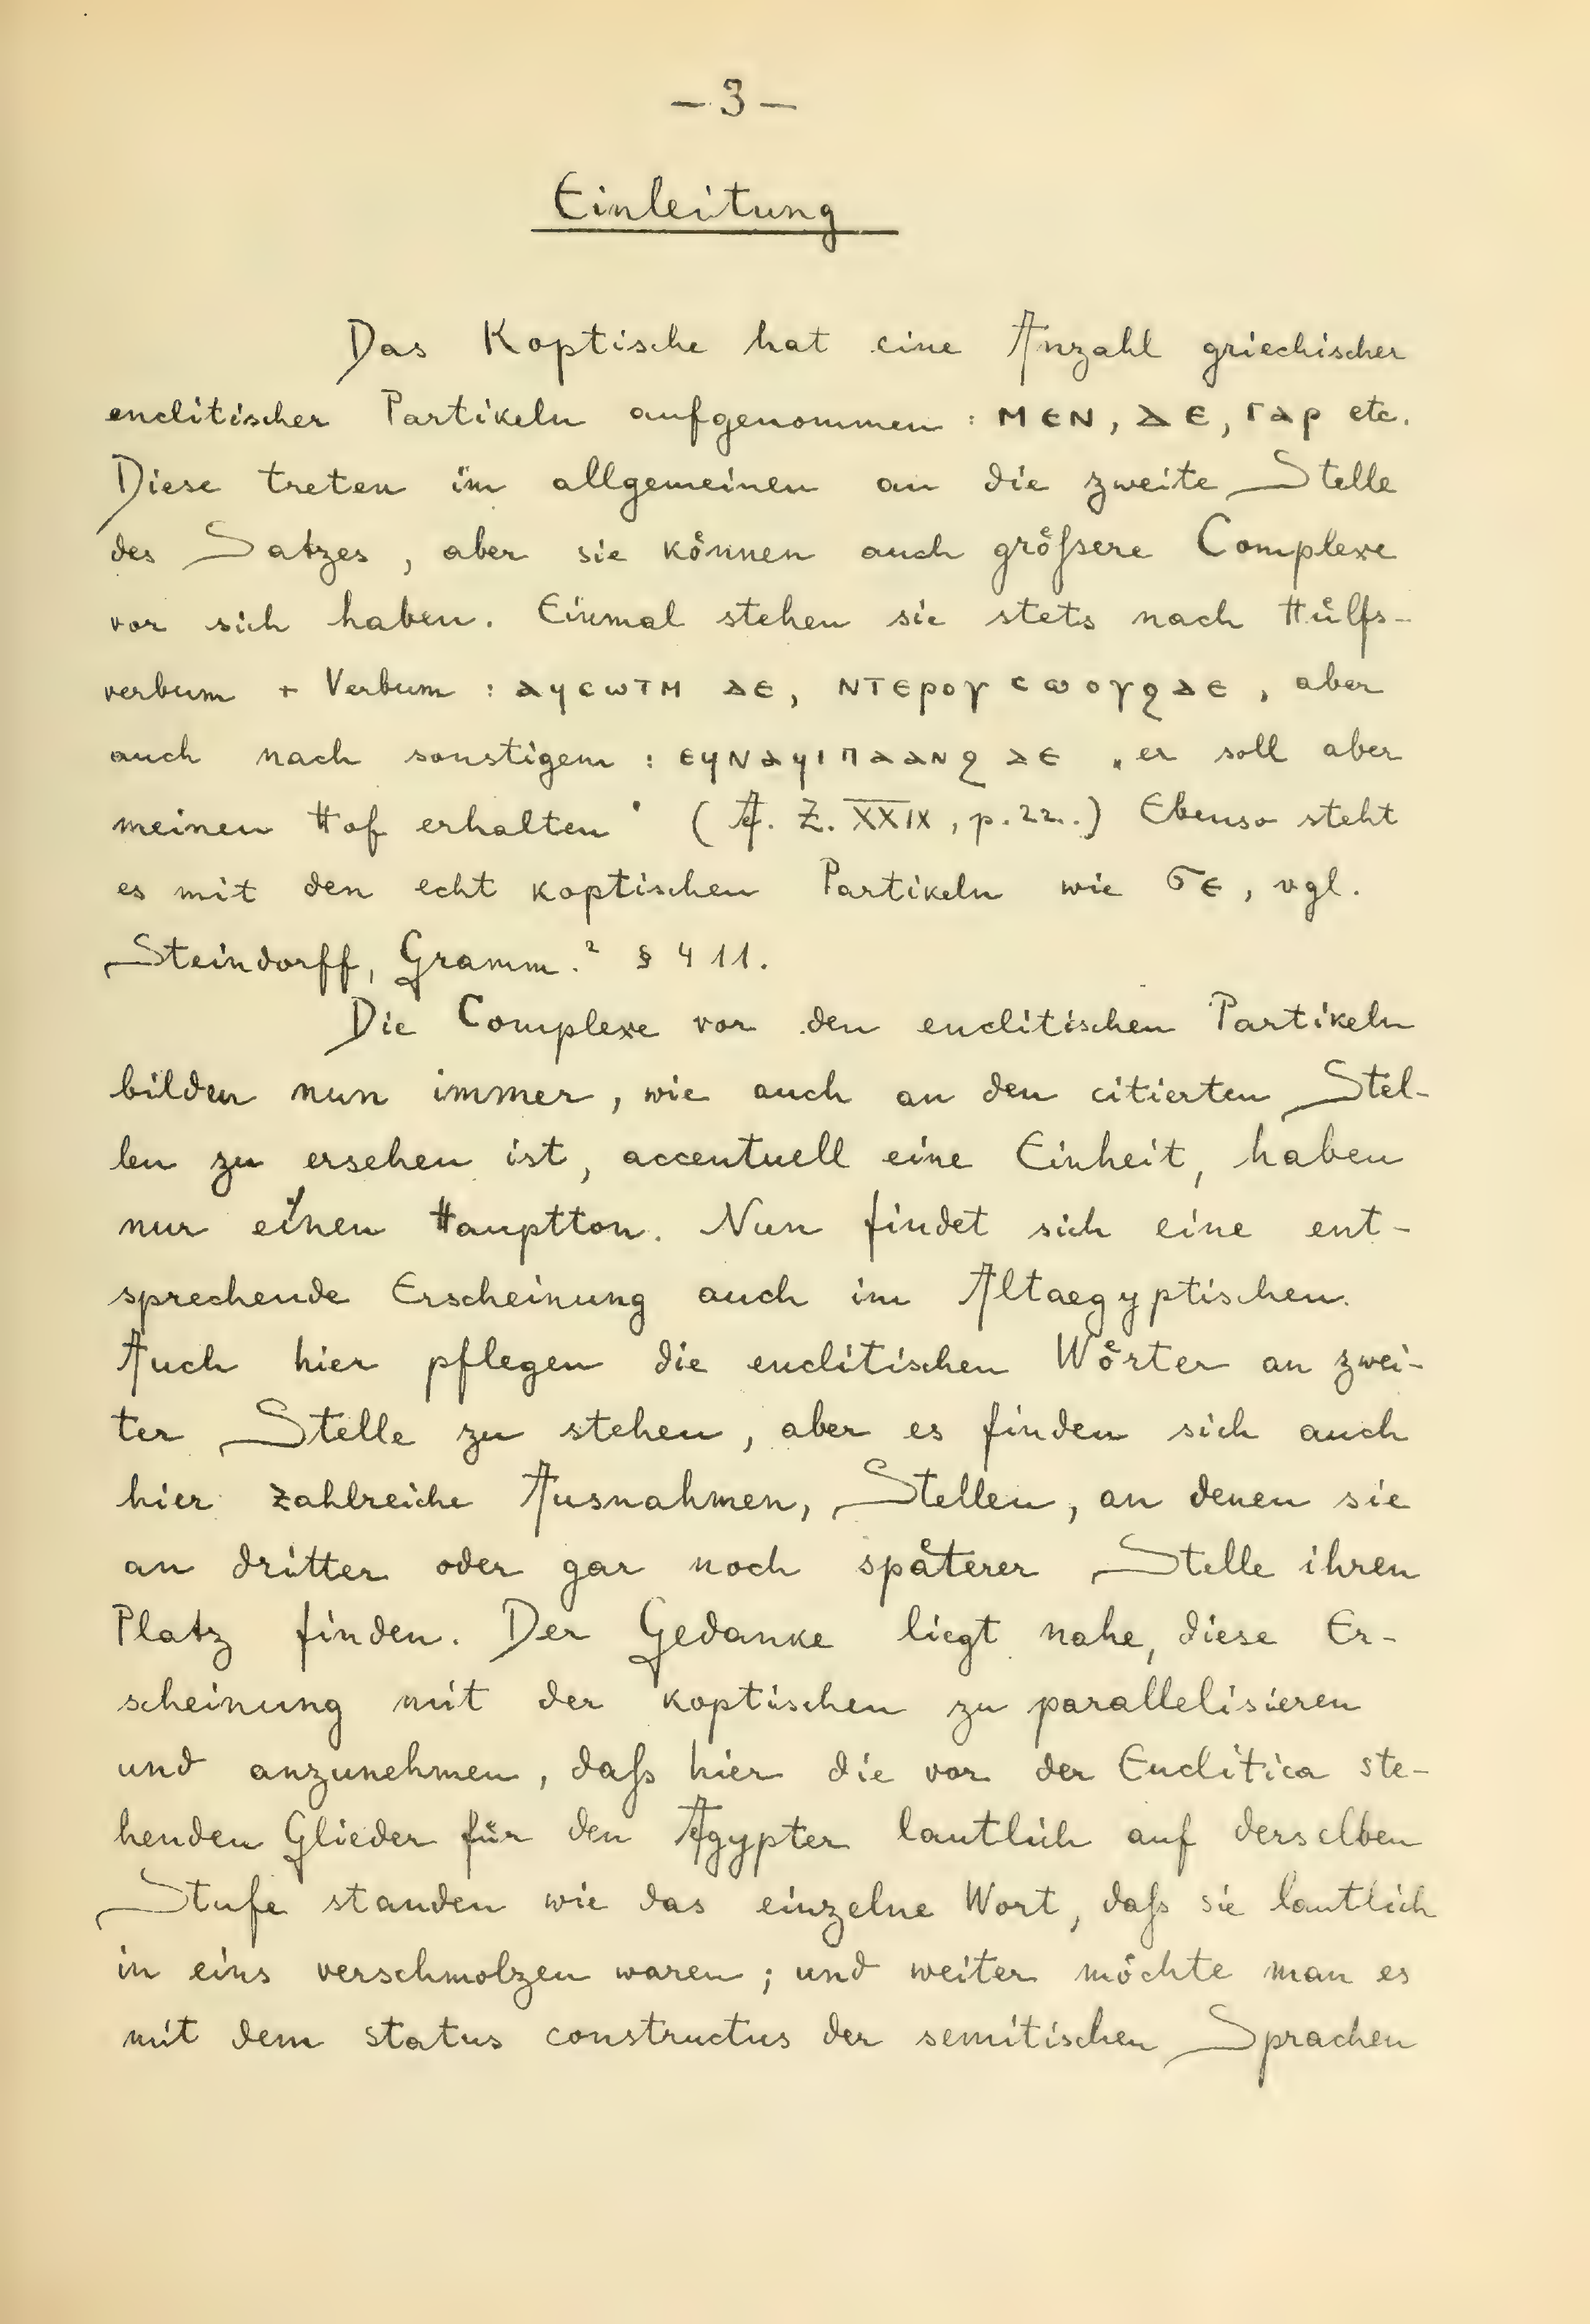 — 3 —
Einleitung
Das Koptische hat eine Anzahl griechischer
enclitischer Partikeln aufgenommen : ⲘⲈⲚ, ⲆⲈ, ⲄⲀⲢ etc.
Diese treten im allgemeinen an die zweite Stelle
des Satzes, aber sie können auch größere Complexe
vor sich haben. Einmal stehen sie stets nach Hülfs-
verbum + Verbum : ⲁϥⲥⲱⲧⲙ ⲇⲉ, ⲛⲧⲉⲣⲟⲩ ⲥⲱⲟⲩϩ ⲇⲉ, aber
auch nach sonstigem : ⲉϥⲛⲁϥⲓⲡⲁⲁⲛϩ ⲇⲉ „er soll aber
meinen Hof erhalten" (Ä. Z. XXIX, p. 22.) Ebenso steht
es mit den echt koptischen Partikeln wie ϭⲉ, vgl.
Steindorff, Gramm.² § 411.
Die Complexe vor den enclitischen Partikeln
bilden nun immer, wie auch an den citierten Stel-
len zu ersehen ist, accentuell eine Einheit, haben
nur einen Hauptton. Nun findet sich eine ent-
sprechende Erscheinung auch im Altaegyptischen.
Auch hier pflegen die enclitischen Wörter an zwei-
ter Stelle zu stehen, aber es finden sich auch
hier zahlreiche Ausnahmen, Stellen, an denen sie
an dritter oder gar noch späterer Stelle ihren
Platz finden. Der Gedanke liegt nahe, diese Er-
scheinung mit der koptischen zu parallelisieren
und anzunehmen, daß hier die vor der Enclitica ste-
henden Glieder für den Ägypter lautlich auf derselben
Stufe standen wie das einzelne Wort, daß sie lautlich
in eins verschmolzen waren; und weiter möchte man es
mit dem status constructus der semitischen Sprachen